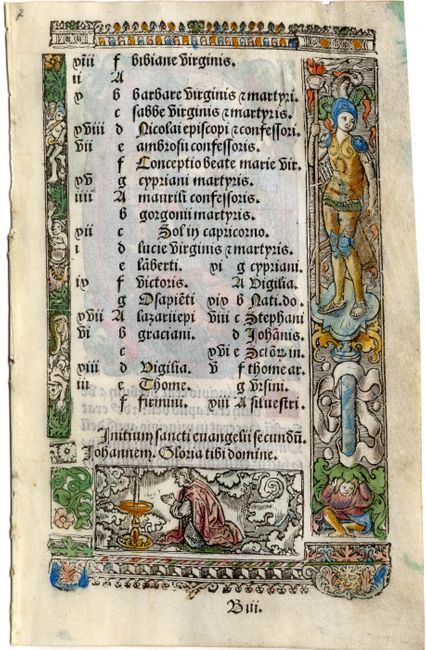 xiii f bibiane virginis.
ii A
x b barbare virginis ⁊ martyri.
c sabbe virginis ⁊ martyris.
xviii d Nicolai episcopi ⁊ confessori.
vii e ambrosii confessoris.
f Conceptio beate marie vir.
xv g cypriani martyris.
iiii A maurilii confessoris.
b gorgonii martyris.
xii c Sol in capricorno.
i d lucie virginis ⁊ martyris.
e lāberti. xi g cypriani.
ix f victoris. A Vigilia.
g Osapiēti xix b Nati. do.
xvii A lazari epi viii c Stephani
vi b graciani. d Johānis.
c xvi e Sctōꝝ in.
xiiii d Vigilia. v f thome ar.
iii e Thome. g vrsini.
f firmini. xiii A silvestri.
Initium sancti euangelii secundū
Johannem. Gloria tibi domine.
B iii.